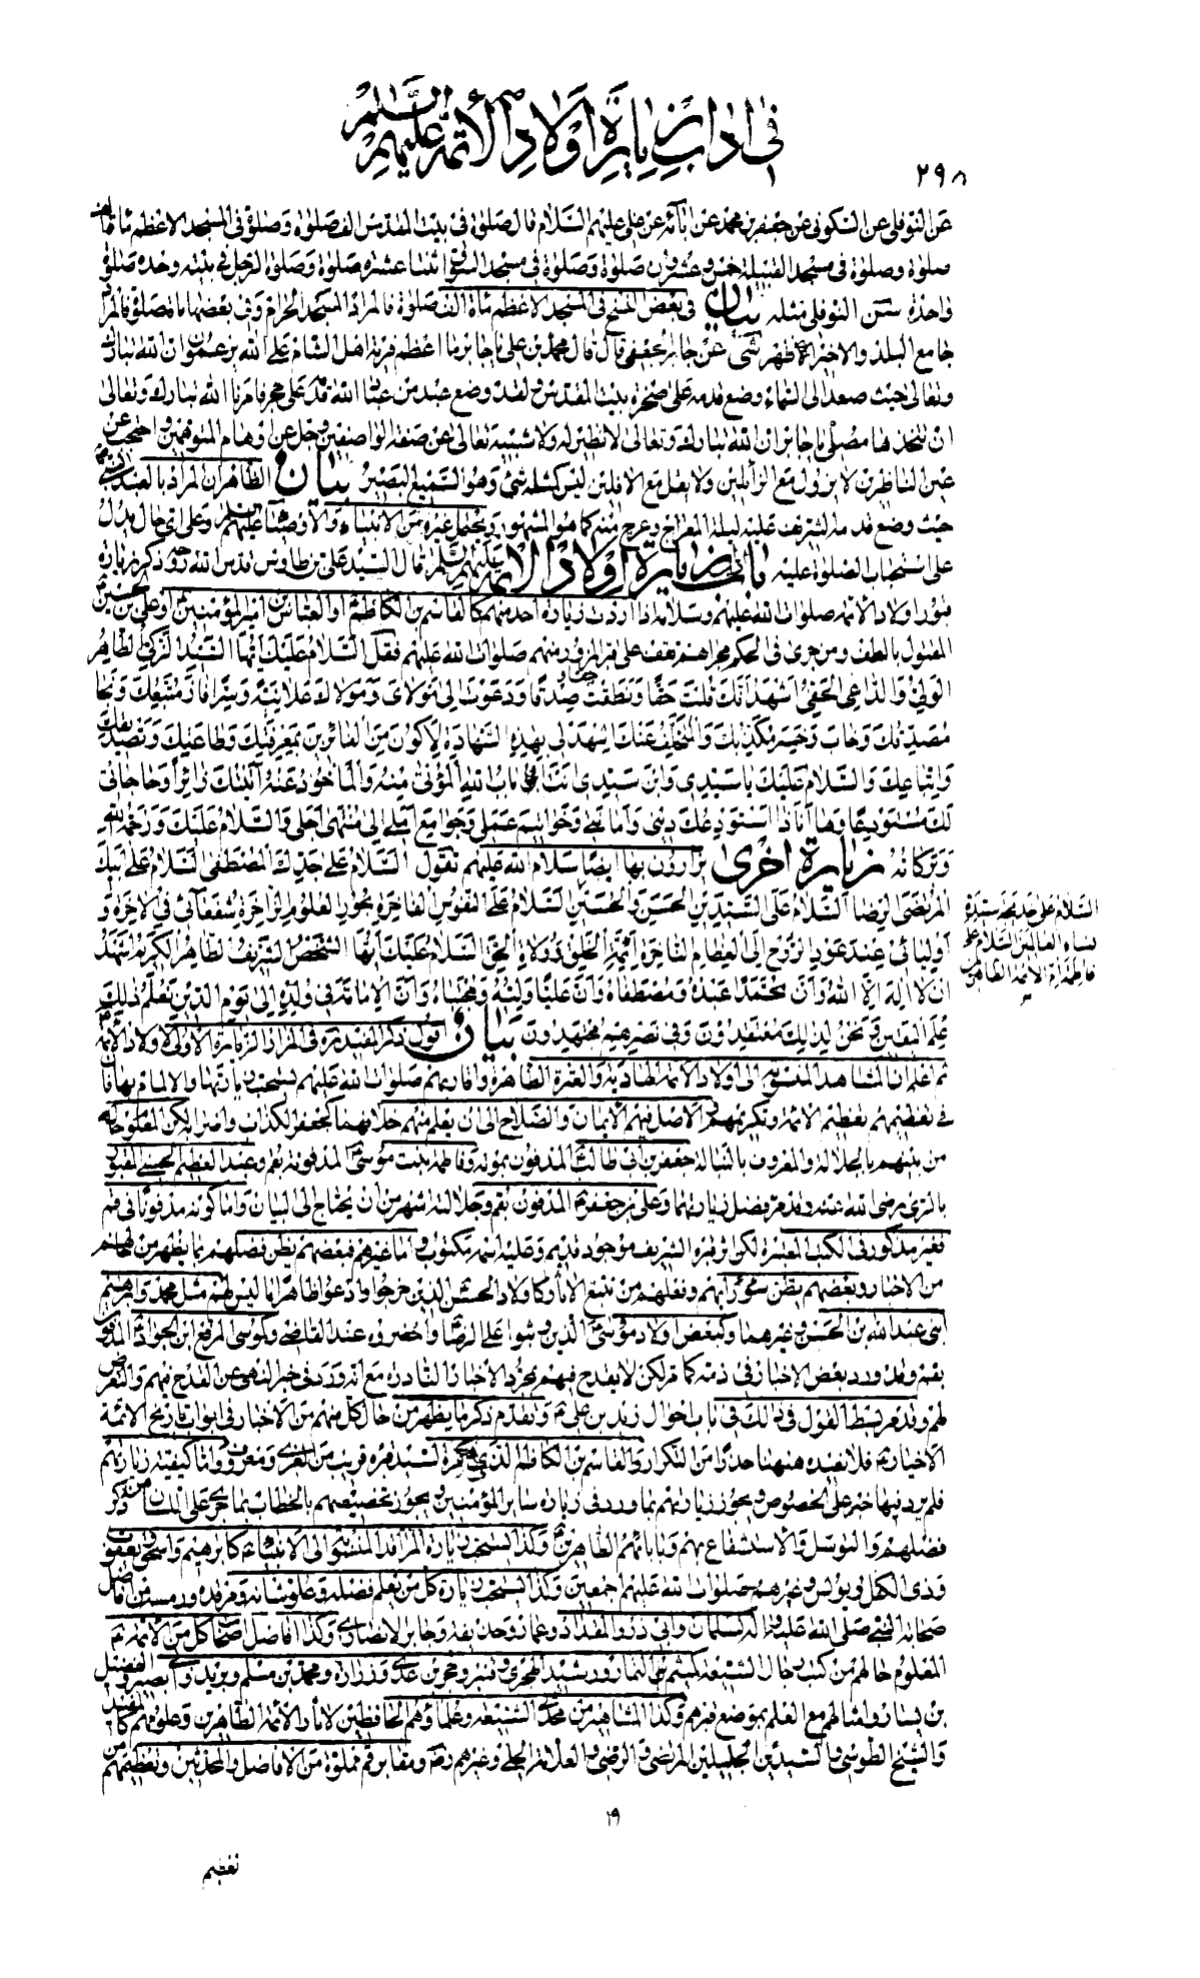 في اداب زيارة اولاد الأئمة عليهم السلام
٢٩٨
عن النوفلي عن السكوني عن جعفر بن محمد عن ابآئه عن علي عليهم السلام قال صلوة في بيت المقدس الف صلوة وصلوة في المسجد الاعظم مائة الف
صلوة وصلوة في مسجد القبيلة خمس وعشرون صلوة وصلوة في مسجد السوق اثنتا عشرة صلوة وصلوة الرجل في بيته وحده صلوة
واحدة سن النوفلي مثله بيان في بعض النسخ في المسجد الاعظم مائة الف صلوة فالمراد المسجد الحرام وفي بعضها مائة صلوة فالمراد
جامع البلد والاخير اظهر شى عن جابر الجعفي قال قال محمد بن علي يا جابر ما اعظم فرية اهل الشام على الله يزعمون ان الله تبارك
وتعالى حيث صعد الى السماء وضع قدمه على صخرة بيت المقدس ولقد وضع عبد من عباد الله قدمه على حجر فامرنا الله تبارك وتعالى
ان نتخذها مصلى يا جابر ان الله تبارك وتعالى لا نظير له ولا شبيه تعالى عن صفة الواصفين وجل عن اوهام المتوهمين واحتجب عن
عين الناظرين لا يزول مع الزائلين ولا يفل مع الافلين ليس كمثله شئ وهو السميع البصير بيان الظاهر ان المراد بالعبد النبي
حيث وضع قدمه الشريف عليه ليلة المعراج وعرج منه كما هو المشهور ويحتمل غيره من الانبياء والاوصياء عليهم السلام وعلى اي حال يدل
على استحباب الصلوة عليه باب زيارة اولاد الائمة عليهم السلام قال السيد علي بن طاوس قدس الله روحه ذكر زيارة
قبور اولاد الائمة صلوات الله عليهم وسلامه اذا اردت زيارة احد منهم كالقاسم بن الكاظم او العباس بن امير المؤمنين او علي بن الحسين
المقتول بالطف ومن جرى في الحكم مجراهم تقف على قبر المزور منهم صلوات الله عليهم فقل السلام عليك ايها السيد الزكي الطاهر
الولي والداعي الحفي اشهد انك قلت حقا ونطقت حقا وصدقا ودعوت الى مولاي ومولاك علانية وسرا فاز متبعك ونجا
مصدقك وخاب وخسر مكذبك والمتخلف عنك اشهد لي بهذه الشهادة لاكون من الفائزين بمعرفتك وطاعتك وتصديقك
واتباعك والسلام عليك يا سيدي وابن سيدي انت باب الله المؤتى منه والماخوذ عنه اتيتك زائرا وحاجاتي
لك مستودعا وها انا ذا استودعك ديني وامانتي وخواتيم عملي وجوامع املي الى منتهى اجلي والسلام عليك ورحمة الله
وبركاته زيارة اخرى يزارون بها ايضا سلام الله عليهم تقول السلام على جدك المصطفى السلام على ابيك
المرتضى الرضا السلام على السيدين الحسن والحسين السلام على النفوس الفاخرة بحور العلوم الزاخرة شفعائي في الاخرة و
اوليائي عند عود الروح الى العظام الناخرة ائمة الخلق وولاة الحق السلام عليك ايها الشخص الشريف الطاهر الكريم اشهد
ان لا اله الا الله وان محمدا عبده ومصطفاه وان عليا وليه ومجتباه وان الامامة في ولده الى يوم الدين نعلم ذلك
علم اليقين ونحن لذلك معتقدون وفي نصرهم مجتهدون بيان اقول ذكر المفيد ره في المزار الزيارة الاولى لاولاد الائمة
ثم اعلم ان المشاهد المنسوبة الى اولاد الائمة الهادية والعترة الطاهرة واقاربهم صلوات الله عليهم يستحب زيارتها والالمام بها فان
في تعظيمهم تعظيم الائمة وتكريمهم الاصل فيهم الايمان والصلاح الى ان يعلم منهم خلافهما كجعفر الكذاب واضرابه لكن المعلوم حاله
من بينهم بالجلالة والمعروف بالنبالة جعفر بن ابي طالب المدفون بموتة وفاطمة بنت موسى المدفونة بقم وعبد العظيم الحسني المقبور
بالري رضي الله عنه وقد مر فضل زيارتهما وعلي بن جعفر المدفون بقم وجلالته اشهر من ان يحتاج الى البيان واما كونه مدفونا في قم
فغير مذكور في الكتب المعتبرة لكن اثر قبره الشريف موجود قديم وعليه اسمه مكتوب واما غيرهم فبعضهم يظن فضلهم بما يظهر من حالهم
من الاخبار وبعضهم يظن سوء رايهم وفعلهم من تتبع الاثار كاولاد الحسن الذين خرجوا وادعوا ظاهرا ما ليس لهم مثل محمد وابرهيم
ابني عبد الله بن الحسن وغيرهما وكبعض اولاد موسى الذين وشوا على الرضا واحضروه عند القاضي وكموسى المبرقع ابن الجواد المدفون
بقم وقد ورد بعض الاخبار في ذمه كما مر لكن لا يقدح فيهم بمجرد الاخبار النادرة مع انه ورد في خبر النهي عن القدح فيهم والتعرض
لهم وقد مر بسط القول في ذلك في باب احوال زيد بن علي وتقدم ذكر ما يظهر من حال كل منهم من الاخبار في ابواب تاريخ الائمة
الاخيار فلا نعيده ههنا حذرا من التكرار والقاسم بن الكاظم الذي ذكره السيد قبره قريب من الغري ومعروف واما كيفية زيارتهم
فلم يرد فيها خبر على الخصوص ويجوز زيارتهم بما ورد في زيارة ساير المؤمنين ويجوز تخصيصهم بالخطاب بما يجري على اللسان من ذكر
فضلهم والتوسل والاستشفاع بهم وبابائهم الطاهرين وكذا يستحب زيارة المراقد المنسوبة الى الانبياء كابرهيم واسحق ويعقوب
وذي الكفل ويونس وغيرهم صلوات الله عليهم اجمعين وكذا يستحب زيارة كل من يعلم فضله وعلو شانه ومرقده ورمسه من افاضل
صحابة النبي صلى الله عليه واله كسلمان وابي ذر والمقداد وعمار وحذيفة وجابر الانصاري وكذا افاضل اصحاب كل من الائمة
المعلوم حالهم من كتب رجال الشيعة كميثم التمار ورشيد الهجري وقنبر وحجر بن عدي وزرارة ومحمد بن مسلم وبريد وابي بصير والفضيل
بن يسار وامثالهم مع العلم بموضع قبرهم وكذا المشاهير من محدثي الشيعة وعلمائهم الحافظين لاثار الائمة الطاهرين وعلومهم كالمفيد
والشيخ الطوسي والسيدين الجليلين المرتضى والرضي والعلامة الحلي وغيرهم رضه ومقابر قم مملوة من الافاضل والمحدثين وتعظيمهم من
السلام على خديجة سيدة
نساء العالمين السلام على
فاطمة ام الائمة الطاهرين
١٩
تعظيم